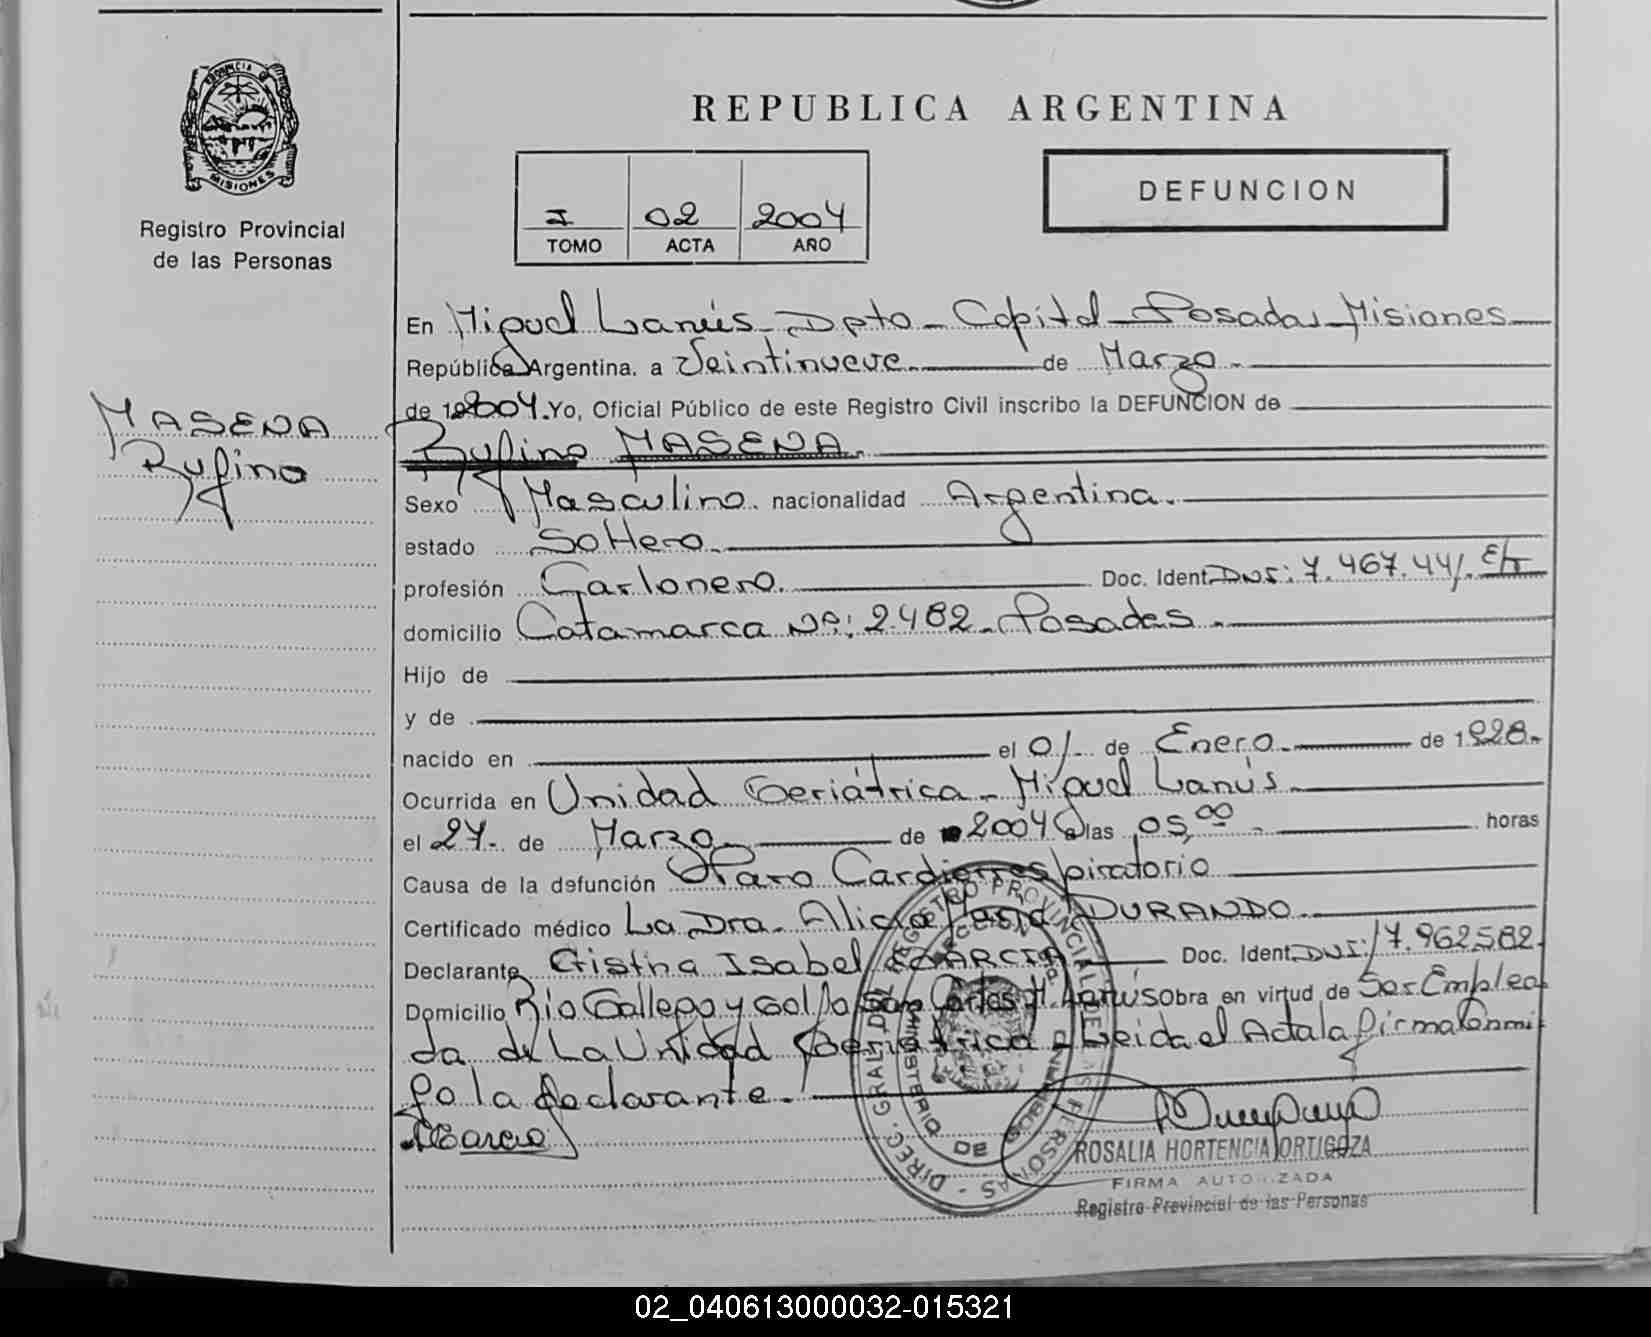 PROVINCIA DE
MISIONES
Registro Provincial
de las Personas
MASENA
Rufino
REPUBLICA ARGENTINA
I 02 2004
TOMO ACTA AÑO
DEFUNCION
En Miguel Lanús - Dpto - Capital - Posadas - Misiones
República Argentina, a Veintinueve de Marzo
de 2004. Yo, Oficial Público de este Registro Civil inscribo la DEFUNCION de
Rufino MASENA.
Sexo Masculino. nacionalidad Argentina.
estado Soltero.
profesión Doc. Ident. DNI: 7.467.441.
domicilio Catamarca Nº: 2482 - Posadas.
Hijo de
y de
nacido en el 01 de Enero de 1928.
Ocurrida en Unidad Geriátrica - Miguel Lanús.
el 27. de Marzo de 2004 a las 05,00 horas
Causa de la defunción Paro Cardiorrespiratorio
Certificado médico La Dra. Alicia DURANDO
Declarante Cristina Isabel GARCIA Doc. Ident. DNI: 17.962.582.
Domicilio Rio Gallego y Golfo San Carlos M. Lanús Obra en virtud de Ser Emplea
da de La Unidad Geriátrica - Leida el Acta la firma Conmi
go la declarante.
Garcia
DIREC. GRAL. DEL REGISTRO PROVINCIAL DE LAS PERSONAS
MINISTERIO DE
ROSALIA HORTENCIA ORTIGOZA
FIRMA AUTORIZADA
Registro Provincial de las Personas
02_040613000032-015321